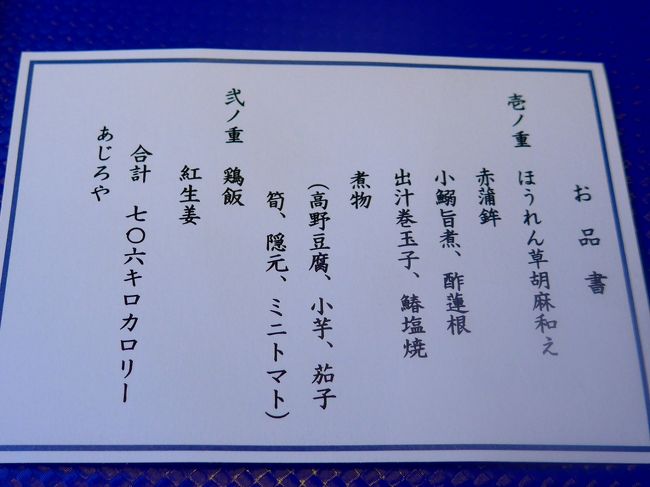 お品書
壱ノ重　ほうれん草胡麻和え
赤蒲鉾
小鰯旨煮、酢蓮根
出汁巻玉子、鰆塩焼
煮物
（高野豆腐、小芋、茄子
筍、隠元、ミニトマト）
弐ノ重　鶏飯
紅生姜
合計　七〇六キロカロリー
あじろや